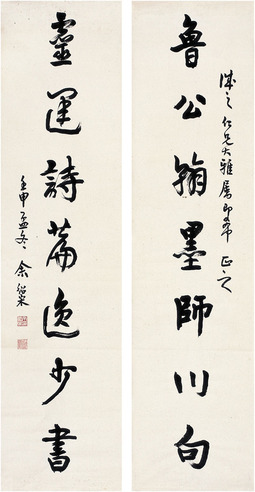 魯公翰墨師川句
誠之仁兄大雅屬即希正之
靈運詩篇逸少書
壬申孟冬余紹宋